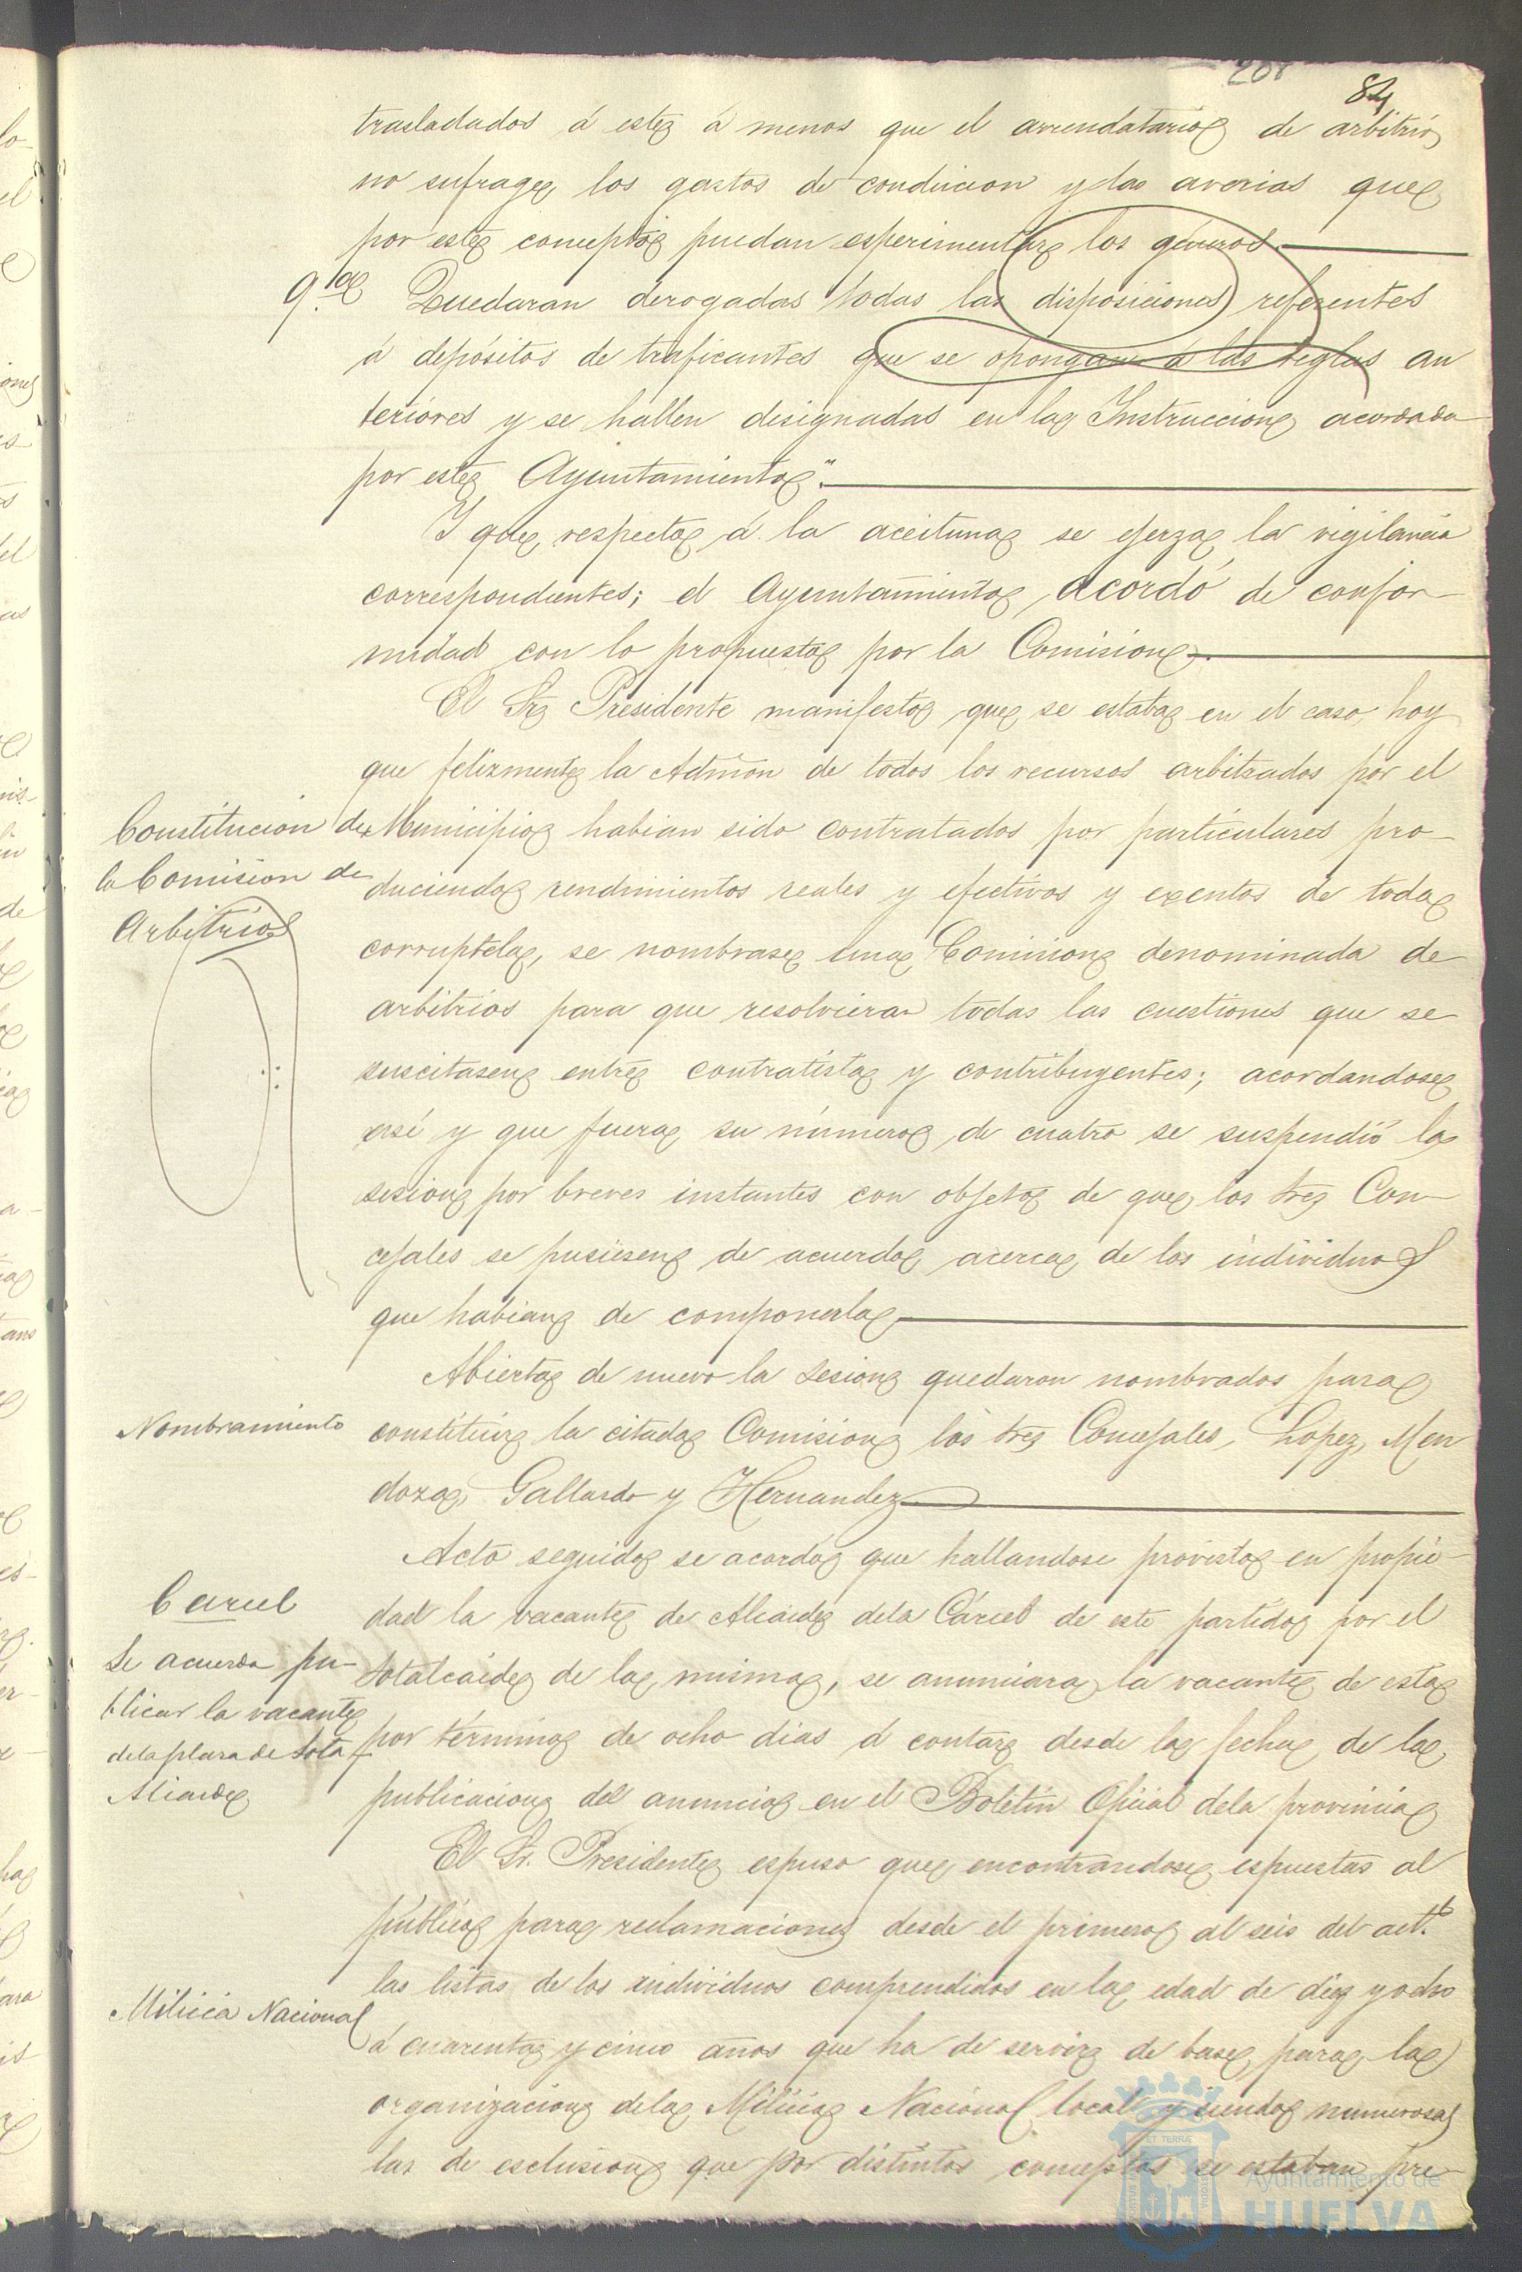 208
84
trasladados á este á menos que el arrendatario de arbitrio
no sufrague los gastos de conduccion y las averias que
por este concepto puedan esperimentar los géneros.
9.ª Quedaran derogadas todas las disposiciones referentes
á depósitos de traficantes que se opongan á las reglas an
teriores y se hallen designadas en la Instruccion acordada
por este Ayuntamiento".
Y que respecto á la aceituna se ejerza la vigilancia
correspondientes; el Ayuntamiento acordó de confor-
midad con lo propuesto por la Comision.
El Sr. Presidente manifesto que se estaba en el caso, hoy
que felizmente la Admon de todos los recursos arbitrados por el
Constitucion de
la Comision de
Arbitrios
Municipio habian sido contratados por particulares pro-
duciendo rendimientos reales y efectivos y exentos de toda
corruptela, se nombrase una Comision denominada de
arbitrios para que resolviera todas las cuestiones que se
suscitasen entre contratista y contribuyentes; acordandose
asi y que fuera su número de cuatro se suspendió la
sesion por breves instantes con objeto de que los Sres Con-
cejales se pusiesen de acuerdo acerca de los individuos
que habian de componerla
Abierta de nuevo la sesion quedaron nombrados para
Nombramiento
constituir la citada Comision los Sres Concejales, Lopez, Men
doza, Gallardo y Hernandez
Acto seguido se acordó que hallandose provista en propie-
Carcel
Se acuerda pu-
blicar la vacante
de la plaza de Sota
Alcaide
dad la vacante de Alcaide dela Cárcel de este partido por el
Sotalcaide de la misma, se anunciara la vacante de esta
por término de ocho dias á contar desde la fecha de la
publicacion del anuncio en el Boletin Oficial dela provincia
El Sr. Presidente espuso que encontrandose espuestas al
público para reclamaciones desde el primero al seis del act.l
las listas de los individuos comprendidos en la edad de diez y ocho
Milicia Nacional
á cuarenta y cinco años que ha de servir de base para la
organizacion dela Milicia Nacional local y siendo numerosas
las de esclusion que por distintos conceptos se estaban pre-
Ayuntamiento de
HUELVA